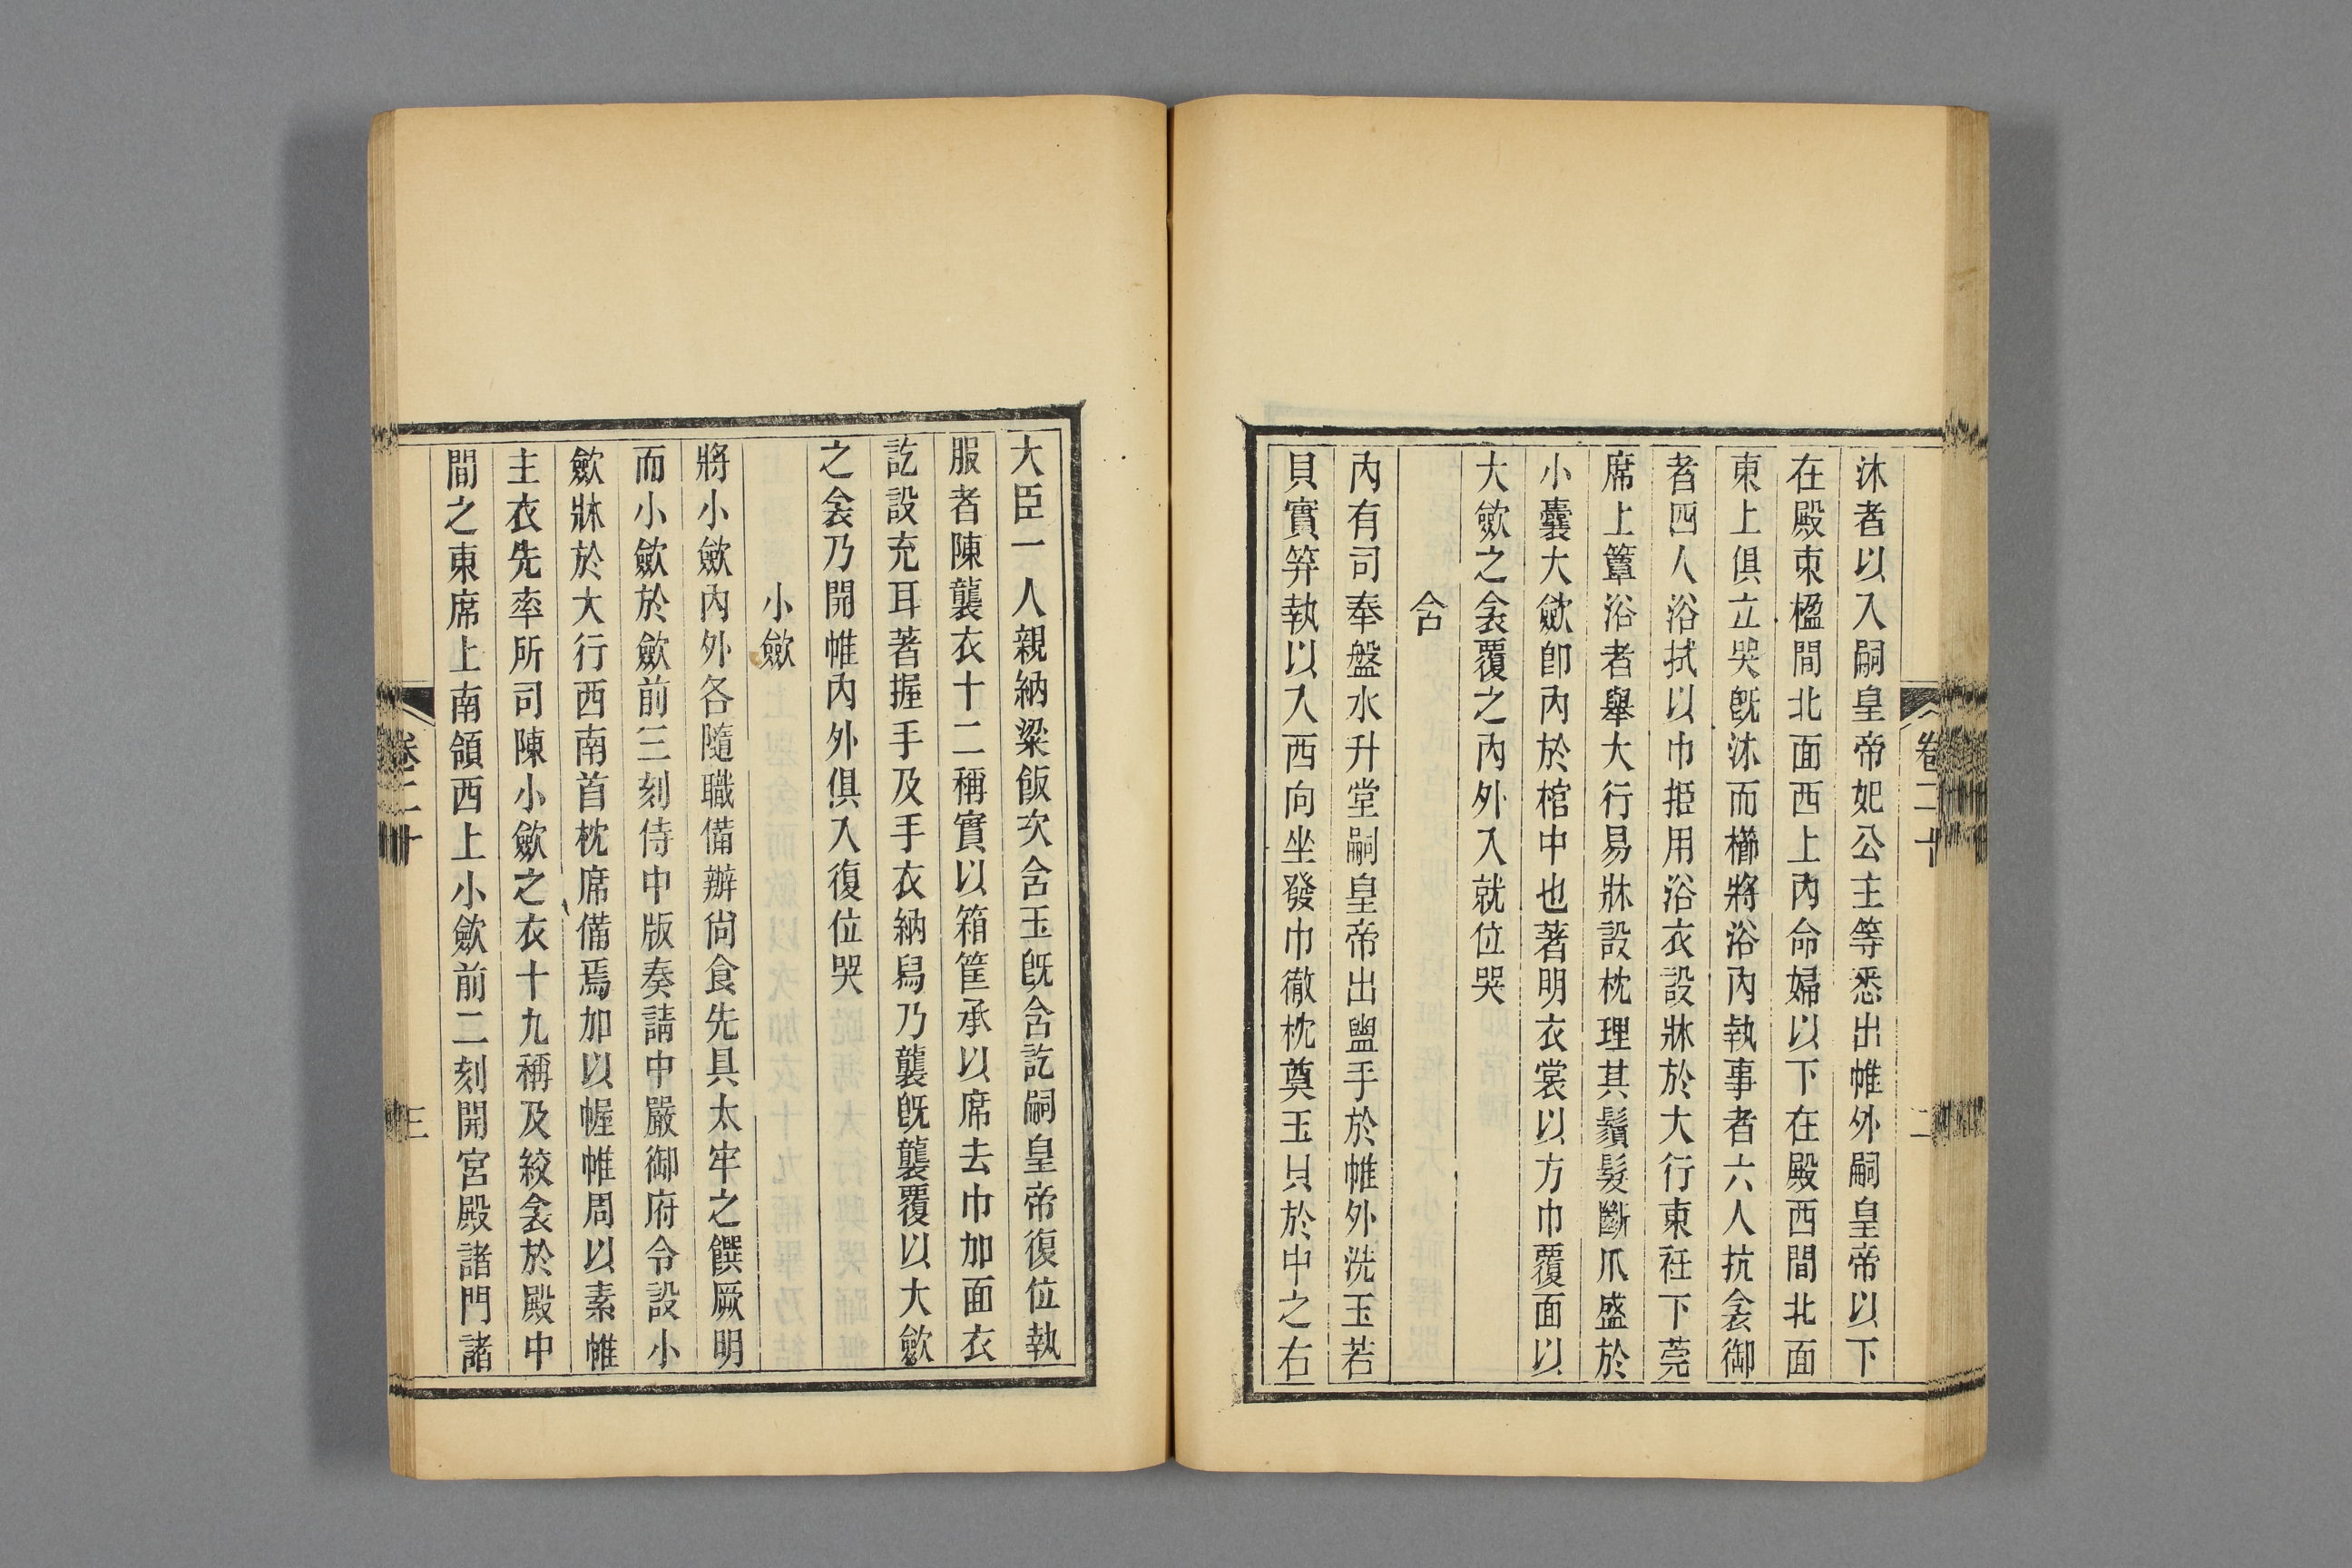 沐者以入嗣皇帝妃公主等悉出帷外嗣皇帝以下
在殿東楹間北面西上內命婦以下在殿西間北面
東上俱立哭旣沐而櫛將浴內執事者六人抗衾御
者四人浴拭以巾挋用浴衣設牀於大行東衽下莞
席上簟浴者舉大行易牀設枕理其鬚髮斷爪盛於
小囊大歛卽內於棺中也著明衣裳以方巾覆面以
大歛之衾覆之內外入就位哭
含
內有司奉盤水升堂嗣皇帝出盥手於帷外洗玉若
貝實笲執以入西向坐發巾徹枕奠玉貝於中之右
卷二十
二
大臣一人親納粱飯次含玉旣含訖嗣皇帝復位執
服者陳襲衣十二稱實以箱筐承以席去巾加面衣
訖設充耳著握手及手衣納舄乃襲旣襲覆以大歛
之衾乃開帷內外俱入復位哭
小歛
將小歛內外各隨職備辦尙食先具太牢之饌厥明
而小歛於歛前三刻侍中版奏請中嚴御府令設小
歛牀於大行西南首枕席備焉加以幄帷周以素帷
主衣先率所司陳小歛之衣十九稱及絞衾於殿中
間之東席上南領西上小歛前二刻開宮殿諸門諸
卷二十
三